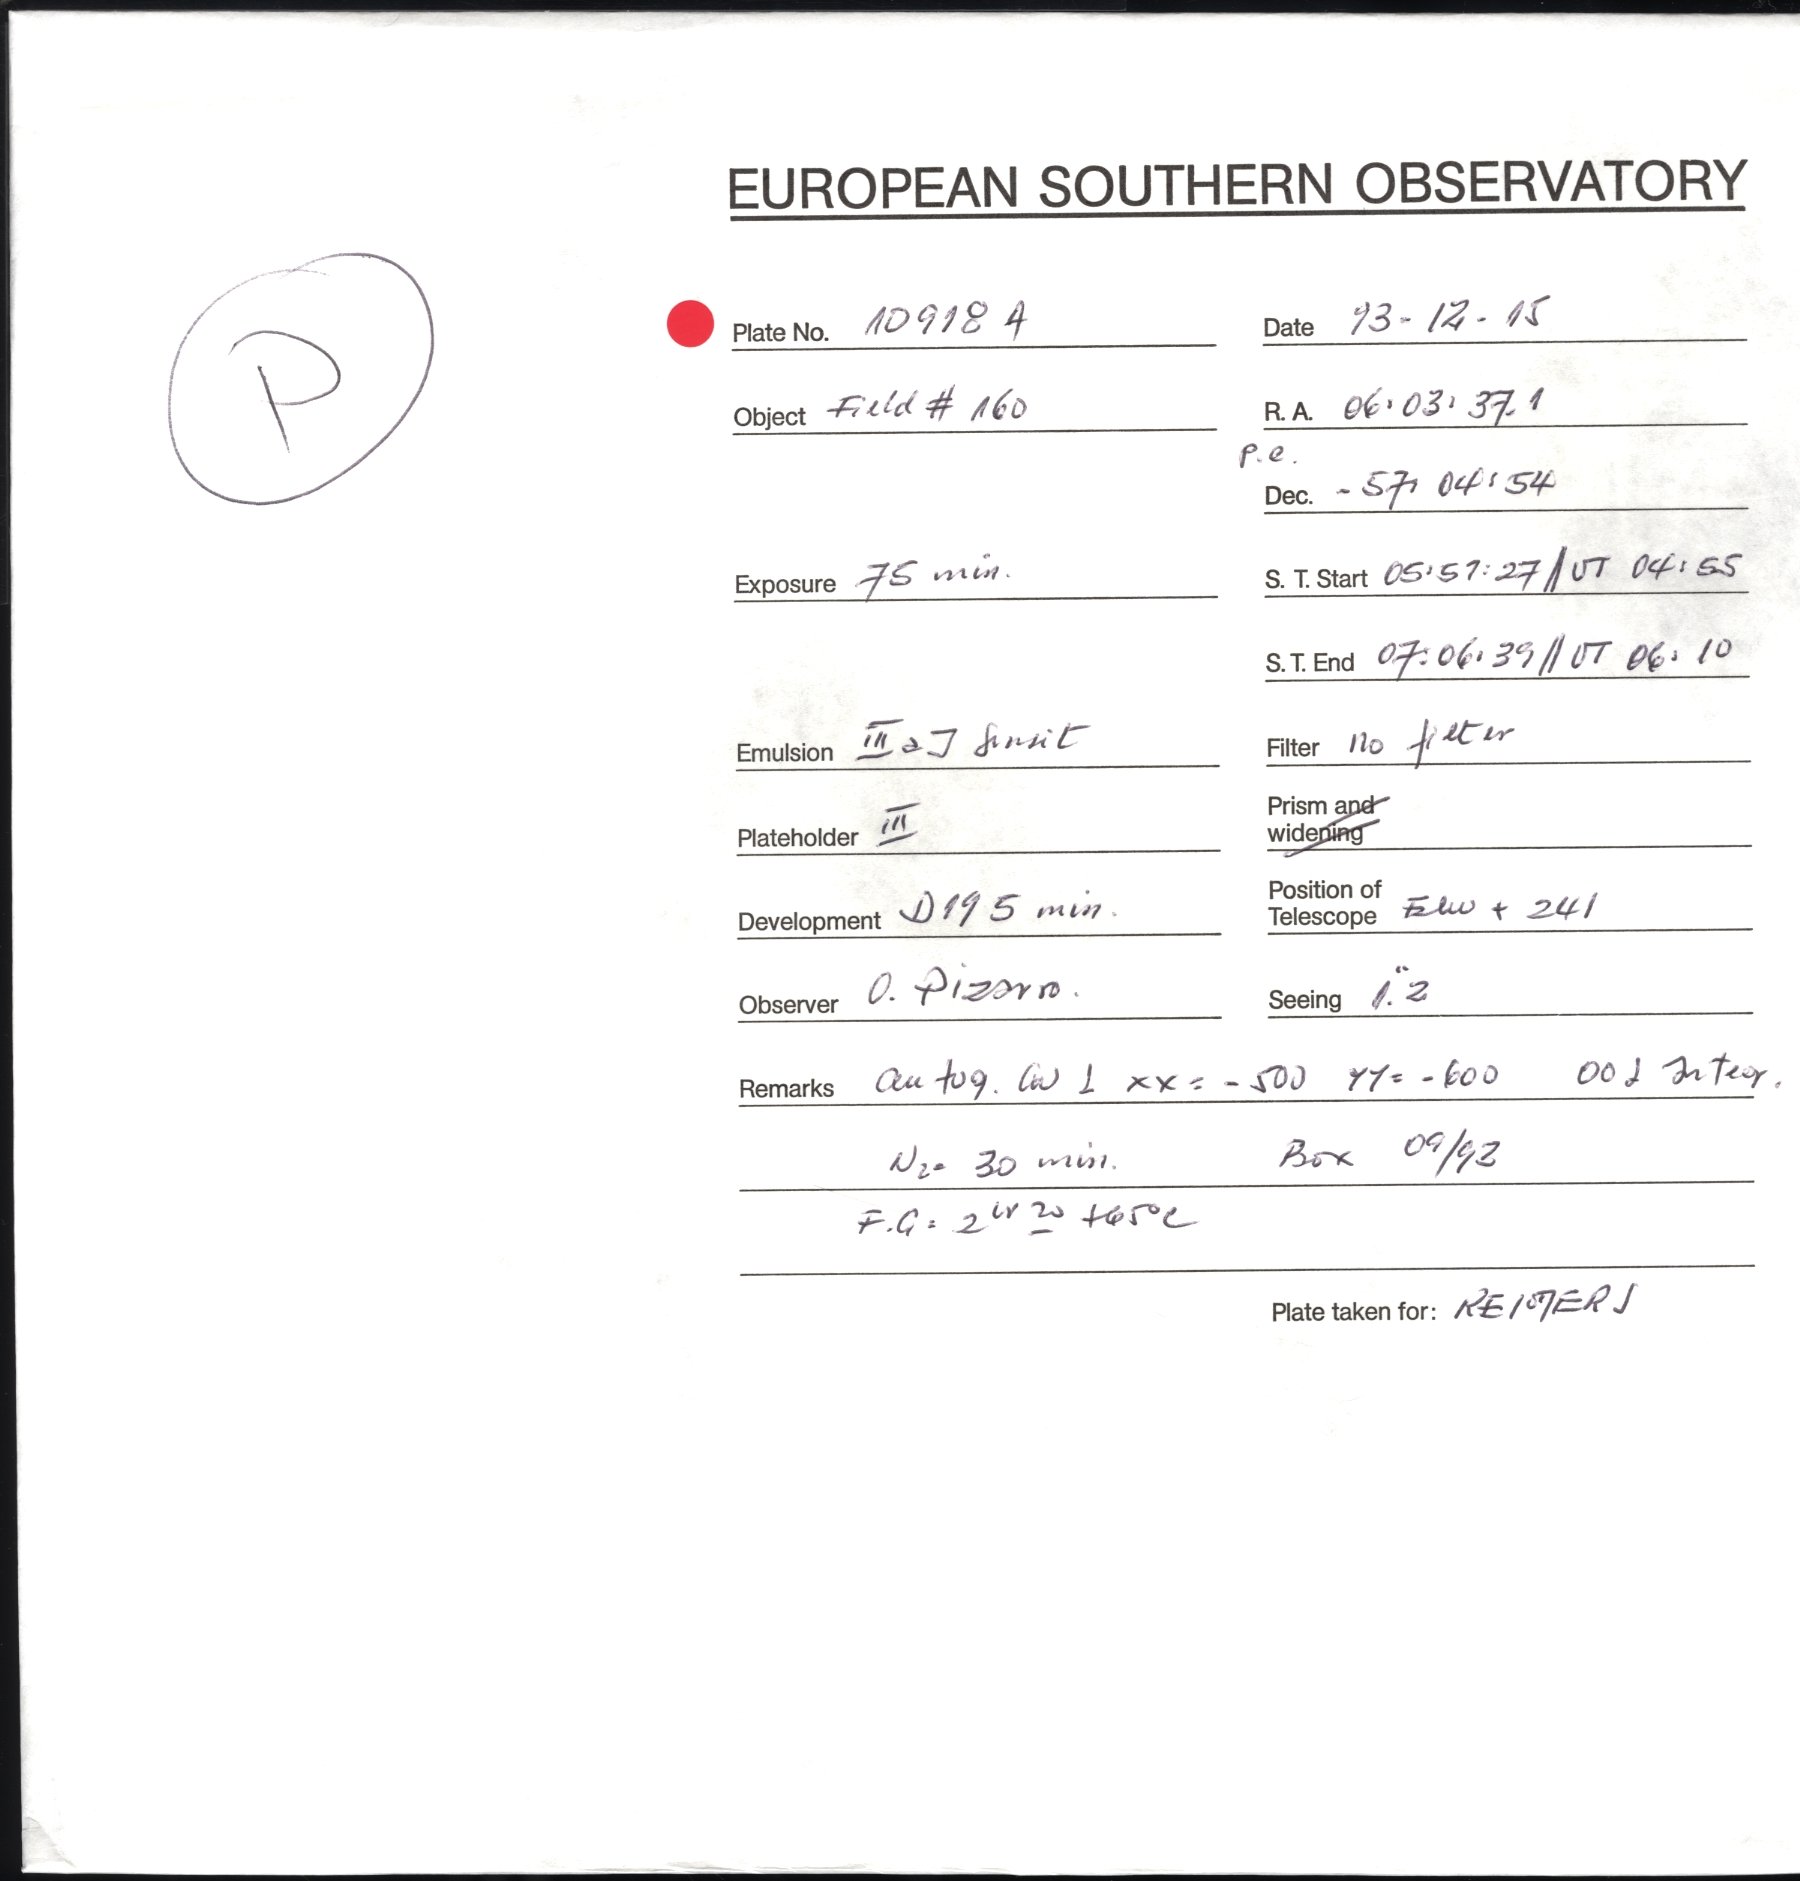 EUROPEAN SOUTHERN OBSERVATORY
P
Plate No. 10918 A
Date 93-12-15
Object Field # 160
R. A. 06:03:37.1
p.e.
Dec. -57:04:54
Exposure 75 min.
S. T. Start 05:51:27 // UT 04:55
S. T. End 07:06:39 // UT 06:10
Emulsion III aJ
Filter no filter
Plateholder III
Prism and
widening
Development D19 5 min.
Position of
Telescope + 241
Observer O. Pizarro.
Seeing 1."2
Remarks autog. xx = -500 yy = -600 Integr.
N2= 30 min. Box 09/93
F.G = 2 20 +65°C
Plate taken for: REIMERS